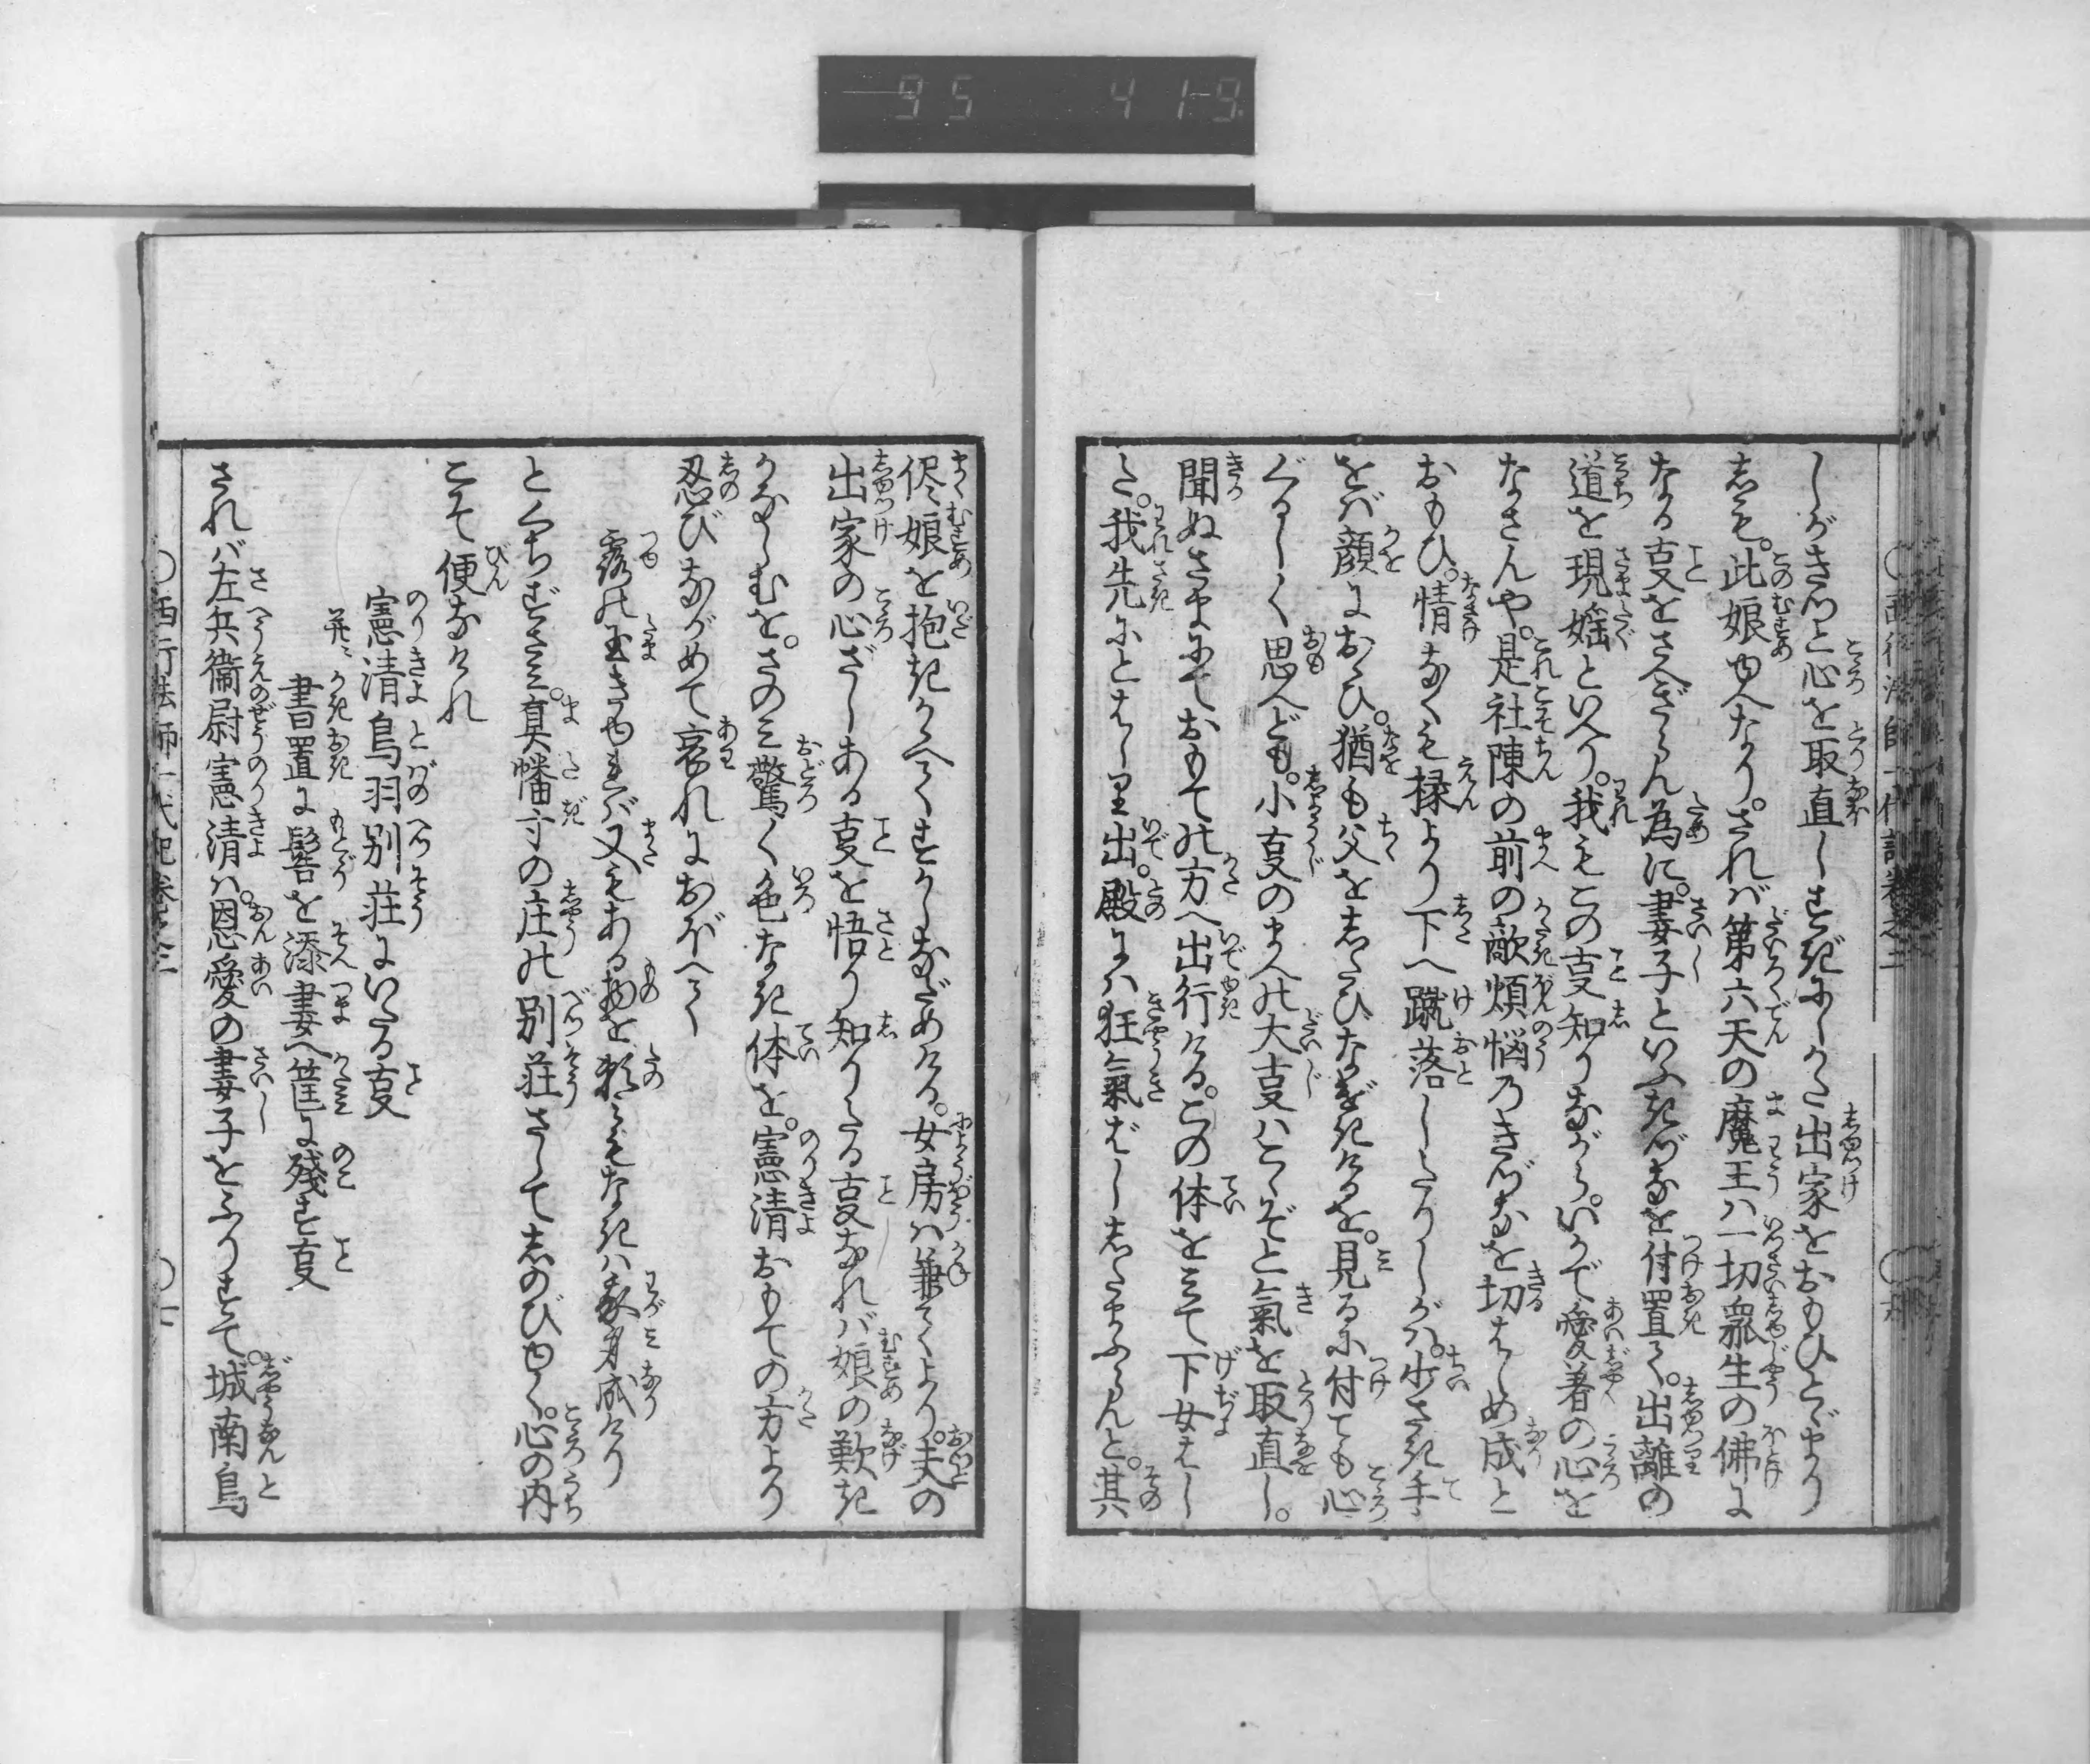 95 419
しがきつと心を取直しすぎにしかた出家をおもひとゞまり
しも。此娘ゆへなり。されバ第六天の魔王ハ一切衆生の佛に
なる㕝をさへぎらん為に。妻子といふきづなを付置て。出離の
道を現婬といへり。我もこの㕝知りながら。いかで愛着の心を
なさんや。是社陳の前の敵煩悩乃きづなを切はしめ成と
おもひ。情なくも椽より下へ蹴落したりしが。少さき手
をバ顔におゝひ。猶も父をしたひなげきけるを。見るに付ても心
ぐるしく思へども。小㕝のまへの大㕝ハこゝぞと氣を取直し。
聞ぬさまにておもての方へ出行ける。この体をミて下女はし
た。我先にとはしり出。殿にハ狂氣ばしし給ふらんと。其
侭娘を抱きかへてすかしなだめける。女房ハ兼てより。夫の
出家の心ざしある㕝を悟り知りたる㕝なれバ娘の歎き
かなしむを。さのミ驚く色なき体を。憲清おもての方より
忍びながめて哀れにおぼへて
露の玉きゆれバ又もある物を頼ミもなきハ我身成けり
と口ちずさミ。真幡寸の庄の別荘さして志のびゆく。心の内
こそ便なけれ
憲清鳥羽別荘にいたる㕝
并ニ書置に髻を添妻へ筐に残す㕝
されバ左兵衛尉憲清ハ。恩愛の妻子をふりすて。城南鳥
西行法師一代記巻之三